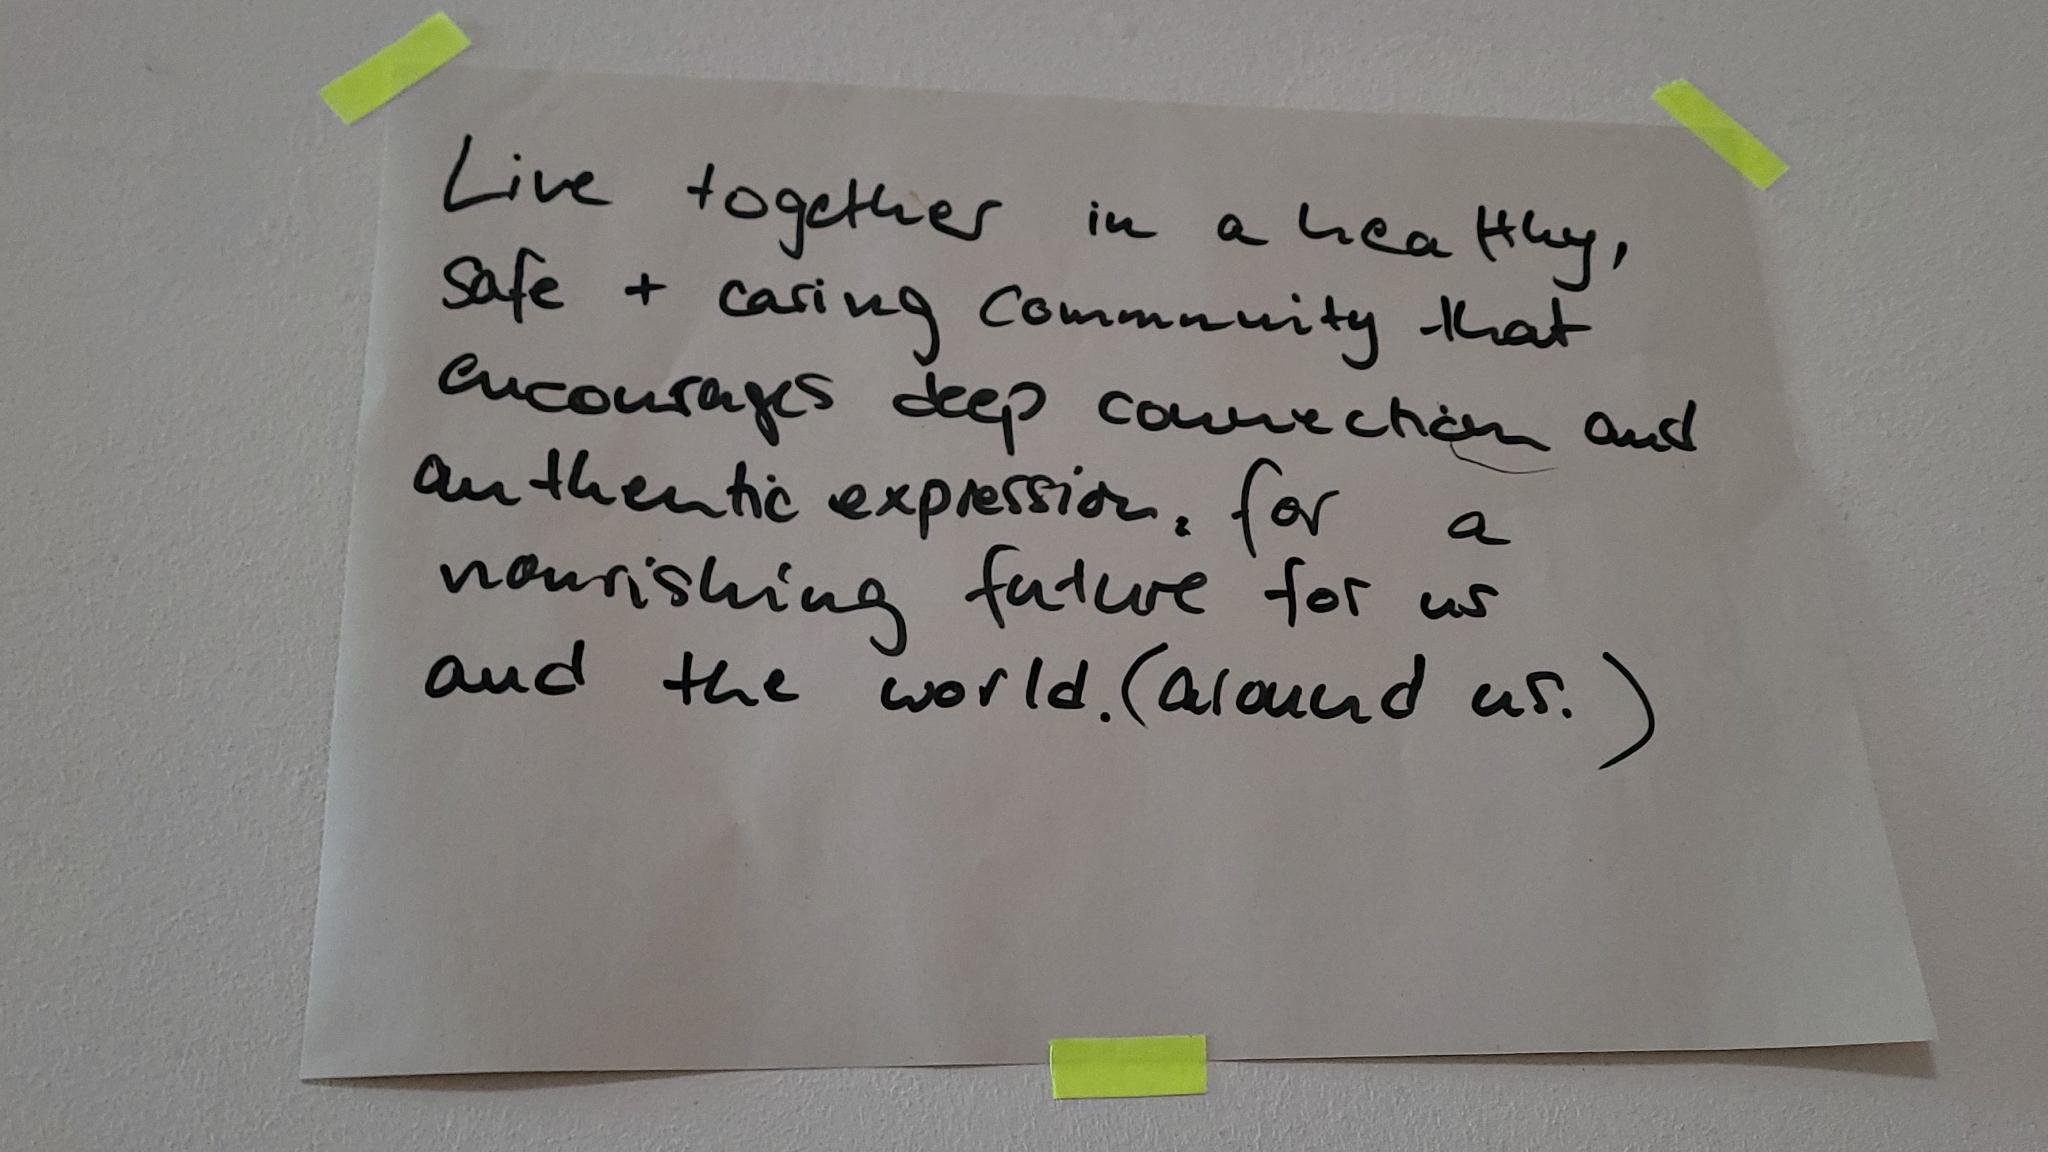 Live together in a healthy,
safe + caring Community that
encourages deep connection and
authentic expression. for a
nourishing future for us
and the world. (around us.)